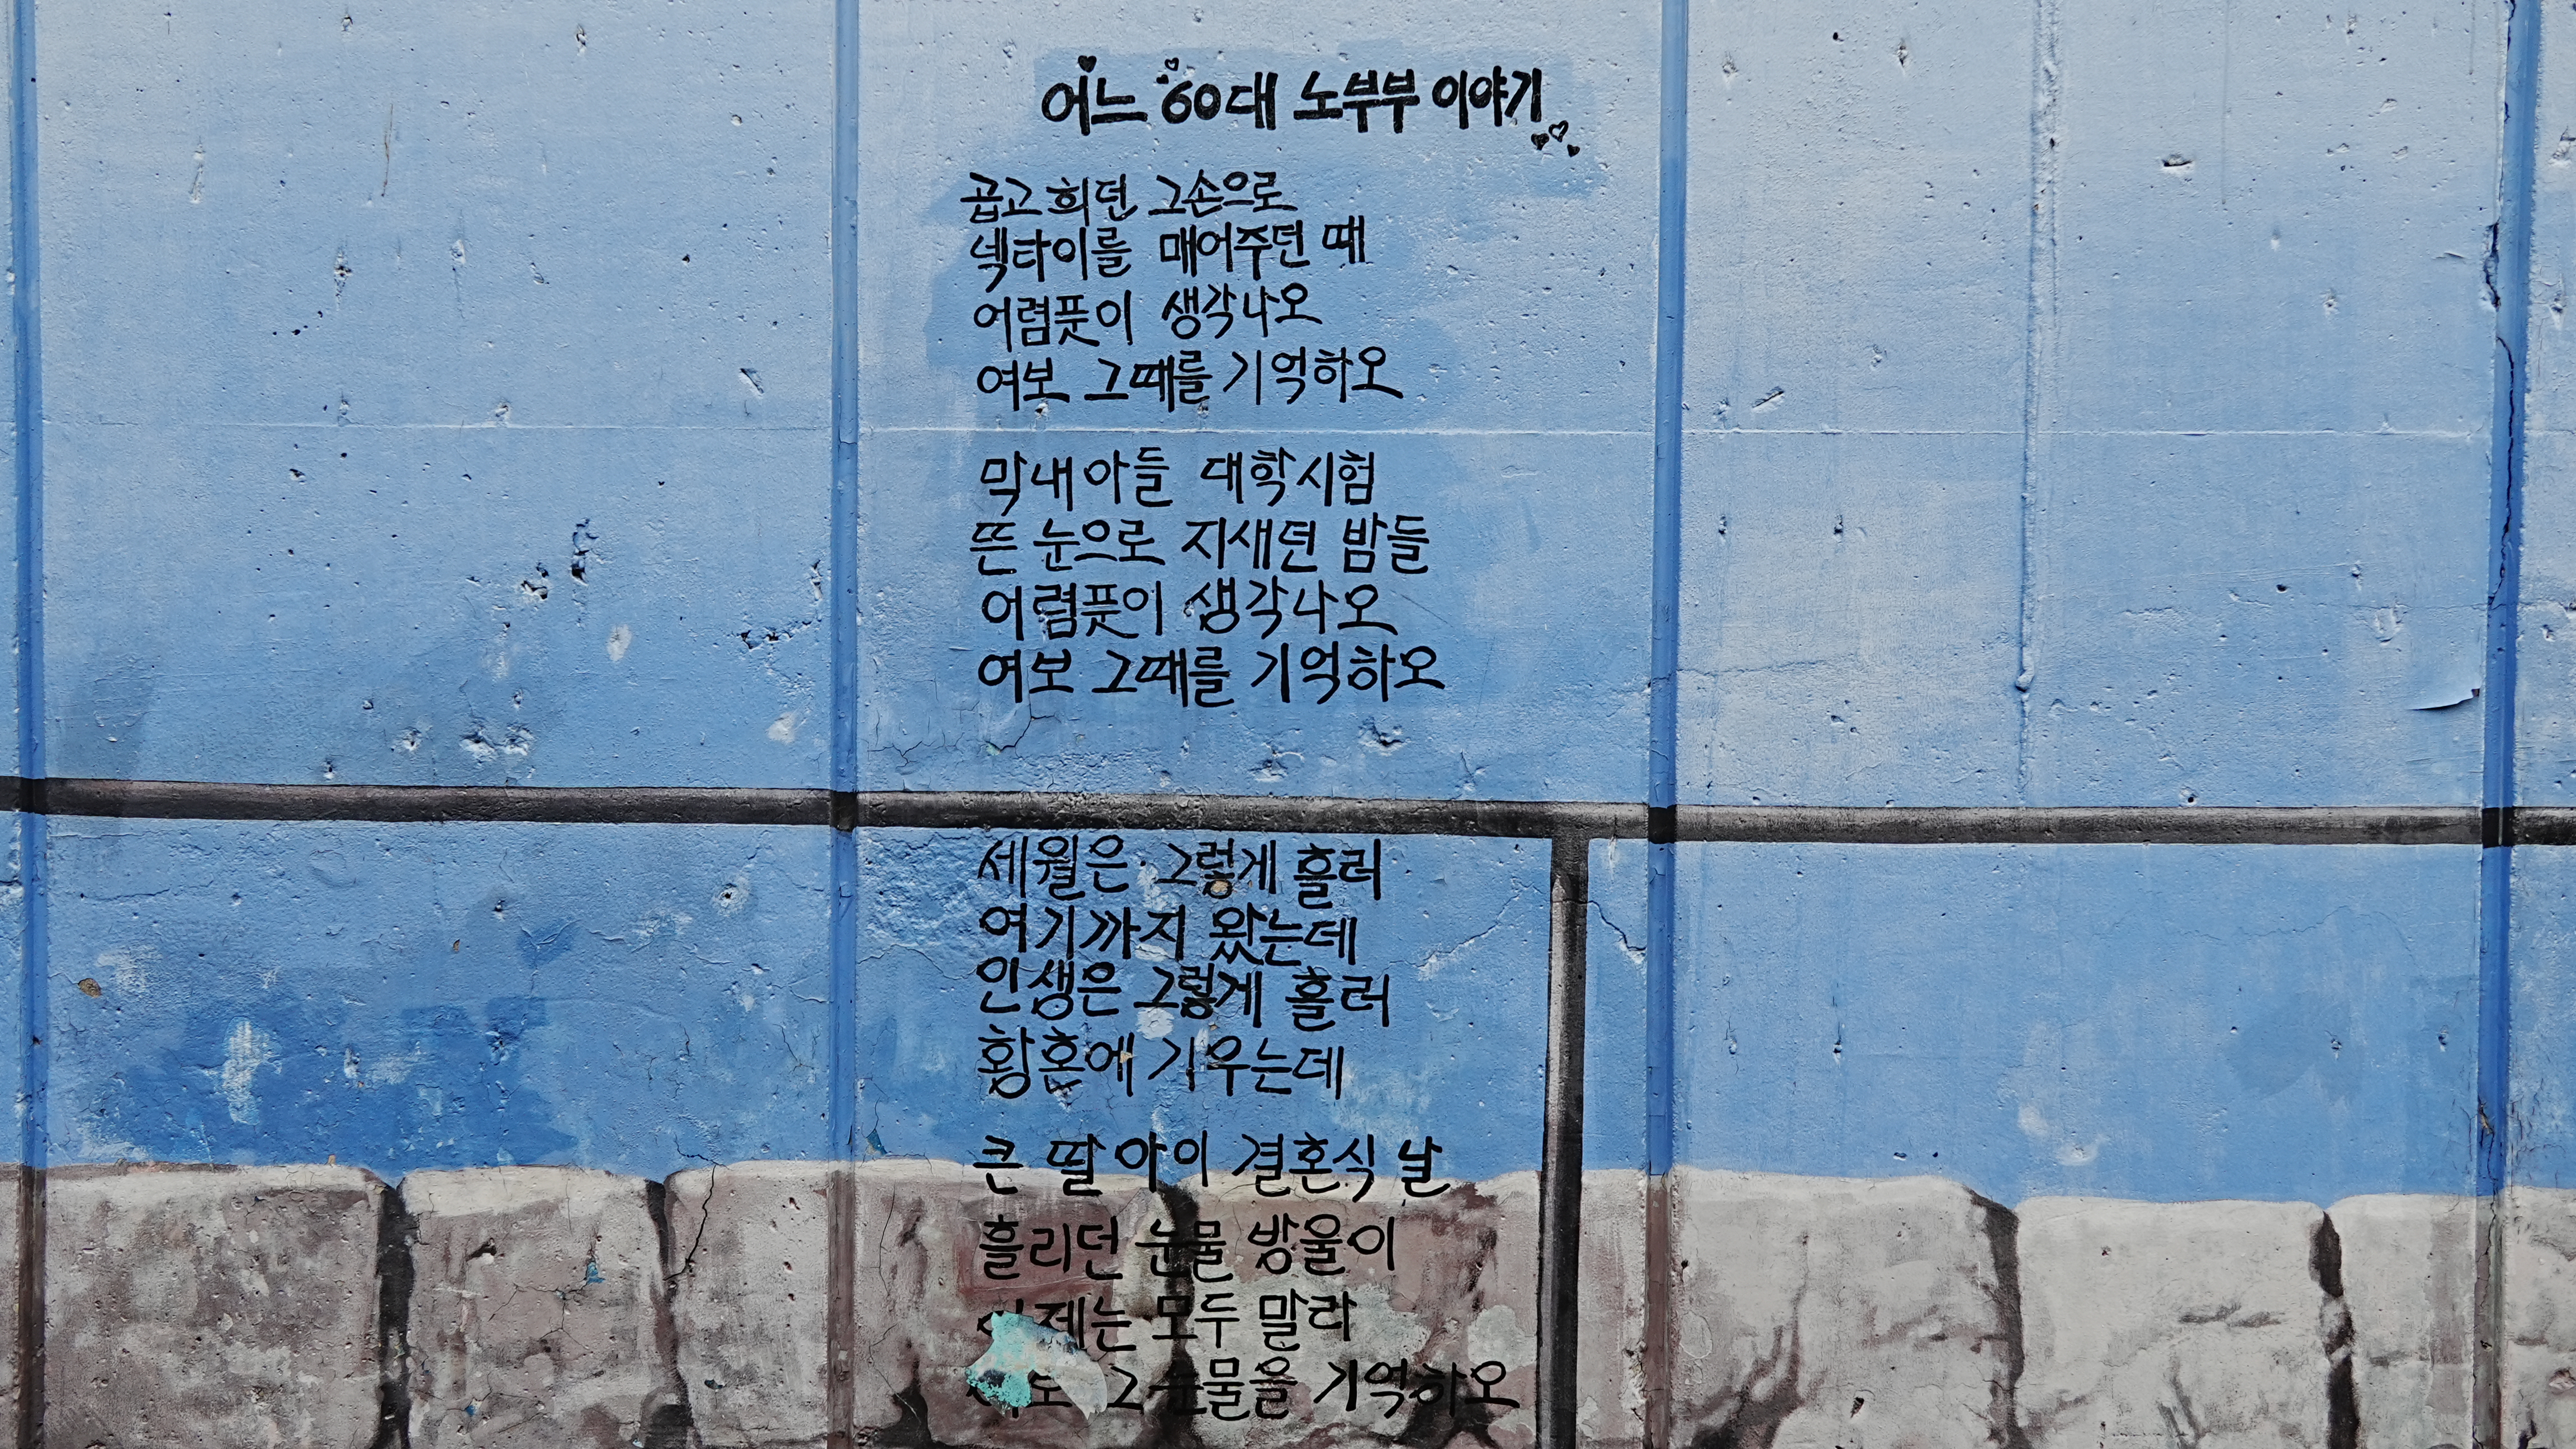 어느 60대 노부부 이야기
곱고 희던 그손으로
넥타이를 매어주던 때
어렴풋이 생각나오
여보 그때를 기억하오
막내아들 대학시험
뜬 눈으로 지새던 밤들
어렴풋이 생각나오
여보 그때를 기억하오
세월은 그렇게 흘러
여기까지 왔는데
인생은 그렇게 흘러
황혼에 기우는데
큰 딸아이 결혼식 날
흘리던 눈물 방울이
모두 말라
그 눈물을 기억하오